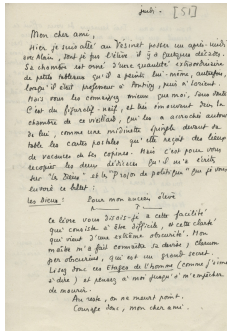 Jeudi. [51]
Mon cher ami,
Hier, je suis allé au Vésinet passer un après-midi
avec Alain, dont je fus l'élève il y a quelques décades.
Sa chambre est ornée d'une quantité extraordinaire
de petits tableaux qu'il a peints lui-même, autrefois,
lorsqu'il était professeur à Pontivy, puis à Lorient.
Mais vous les connaissez mieux que moi, sans doute.
C'est du figuratif naïf, et très émouvant dans la
chambre de ce vieillard, qui les a accrochés autour
de lui, comme une midinette épingle devant sa
table les cartes postales qu'elle reçoit des lieux
de vacances de ses copines. Mais c'est pour vous
recopier les deux dédicaces qu'il m'a écrites
sur "les Dieux" et "Propos de politique" que je vous
envoie ce billet :
Les Dieux : Pour mon ancien élève
Ce livre vous disais-je a cette facilité
qui consiste à être difficile, et cette clarté
qui vient d'une extrême obscurité. Mon
maître m'a fait connaître la devise ; clarum
per obscurius, qui est un grand secret.
Lisez donc ces Étapes de l'homme (comme j'aime
à dire) et pensez à moi jusqu'à m'empêcher
de mourir.
Au reste, on ne meurt point.
Courage donc, mon cher ami.